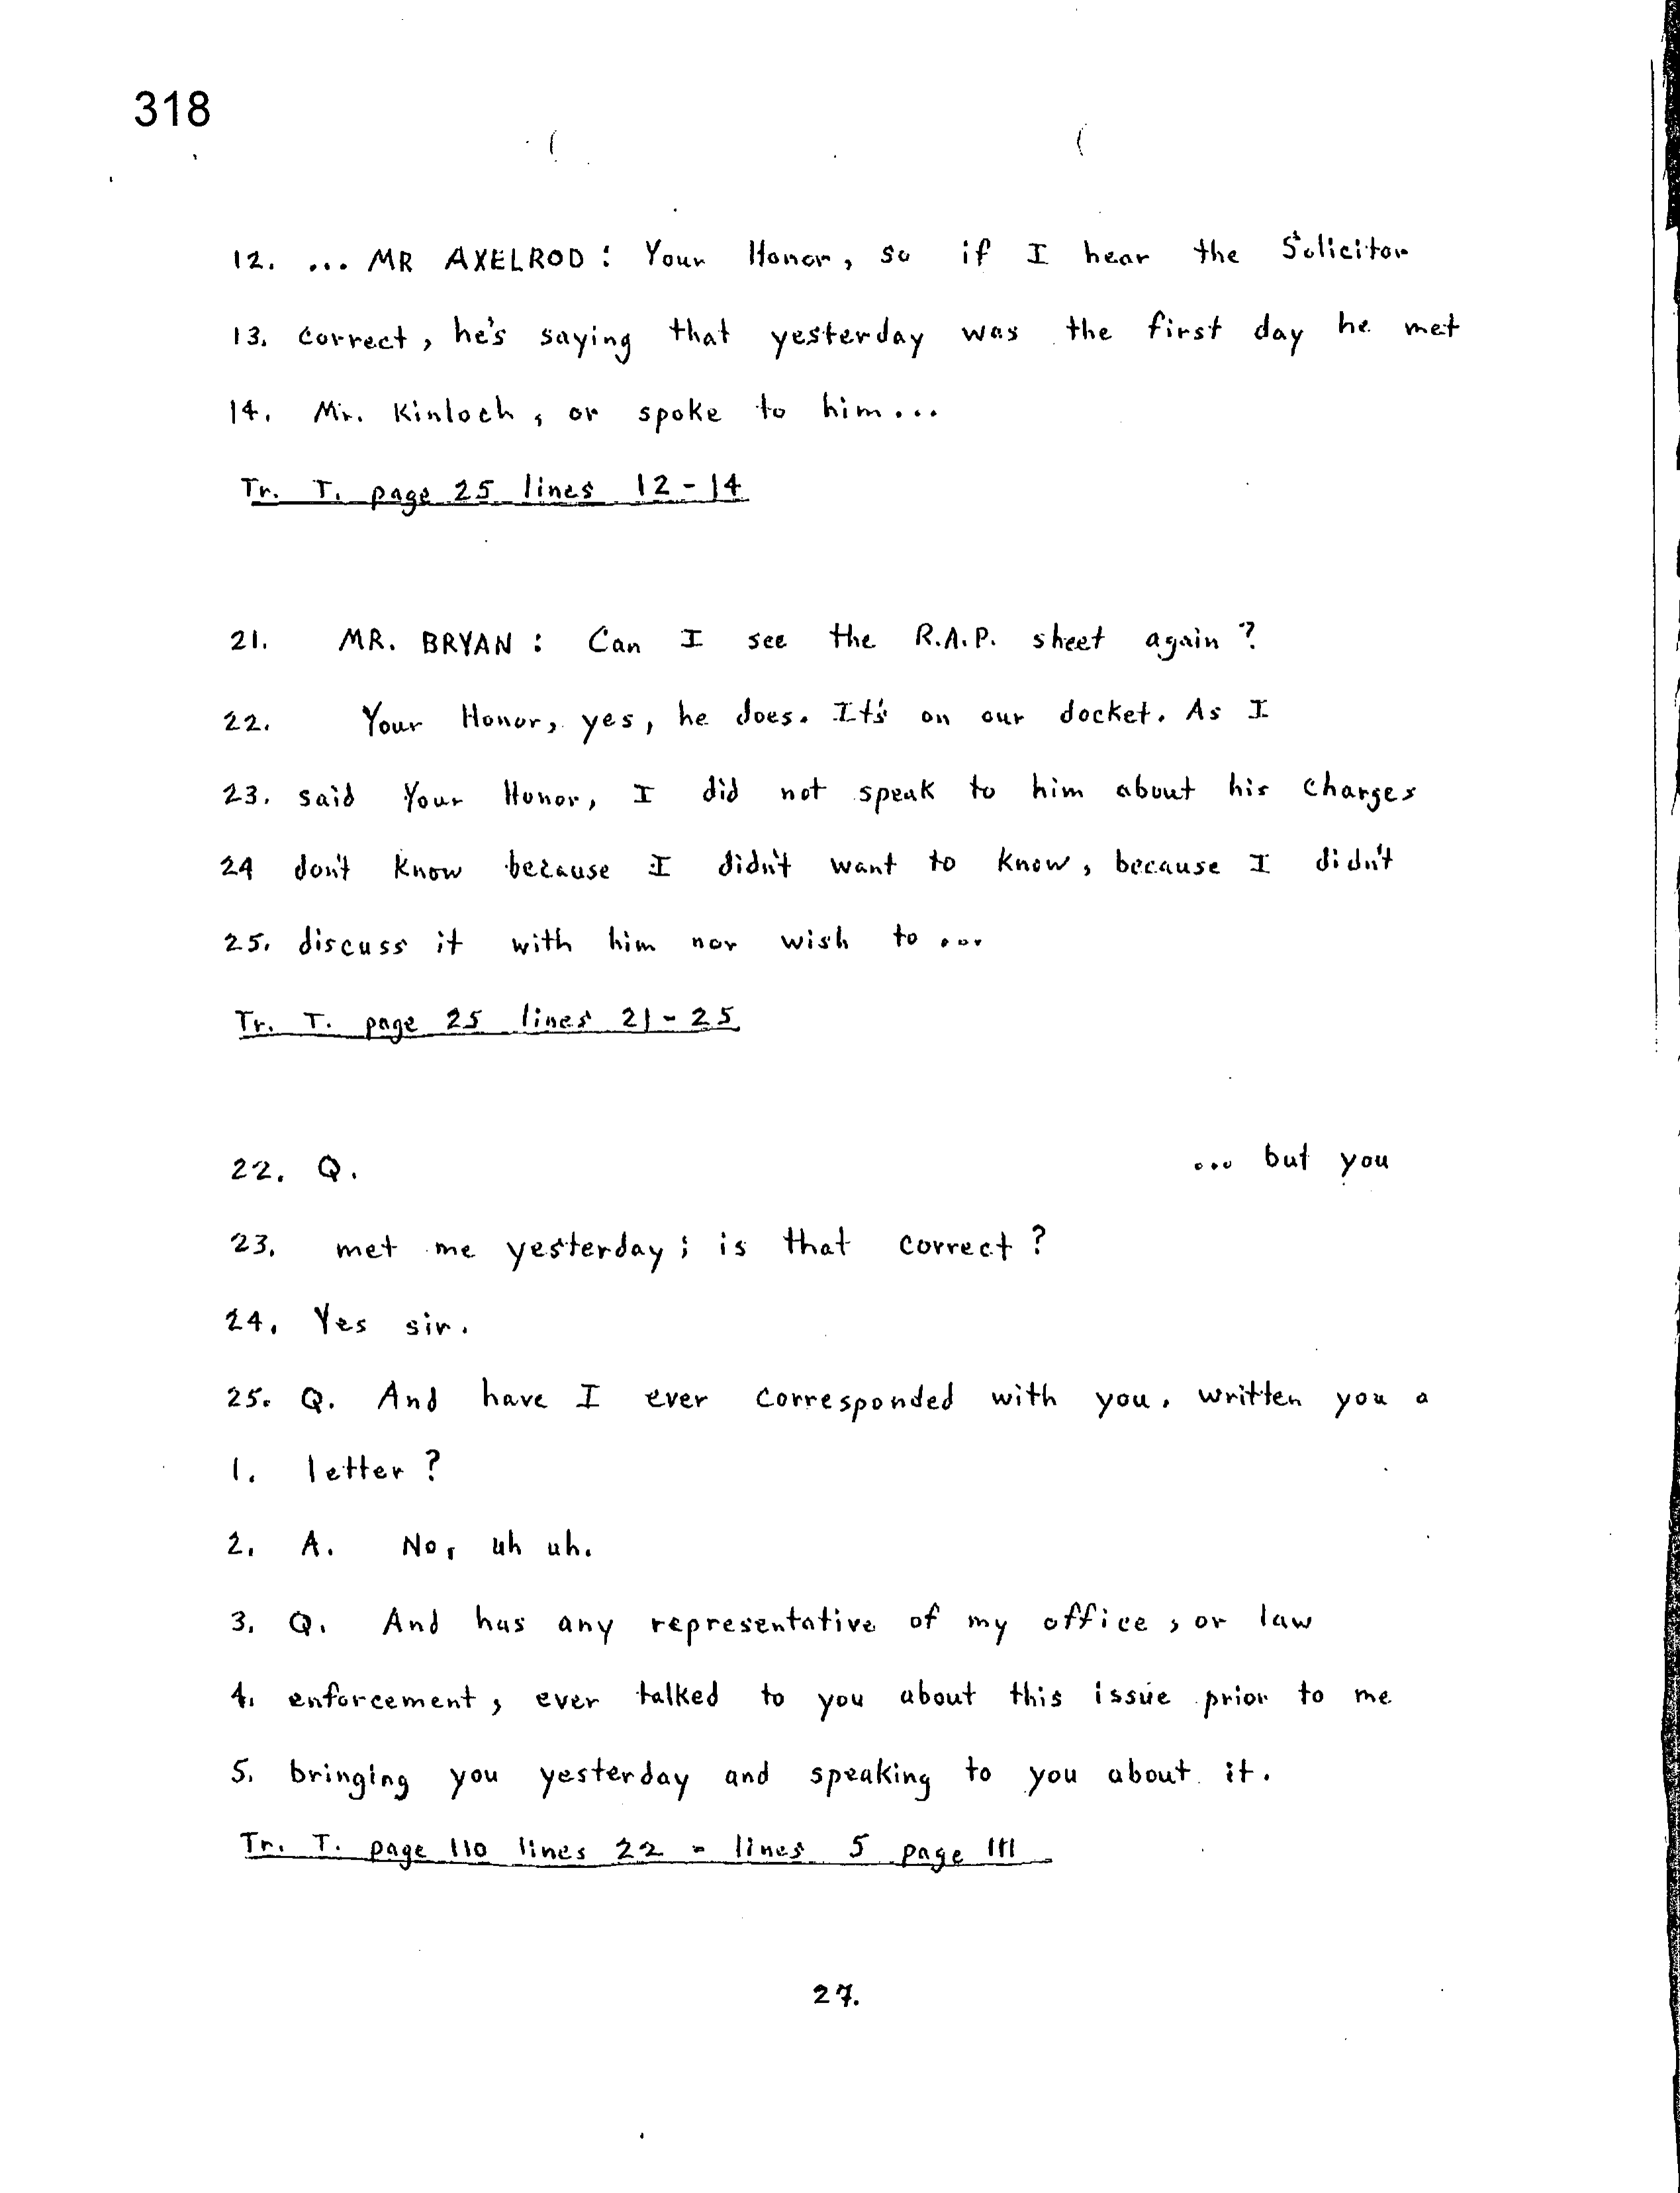 318
12. ... MR AXELROD : Your Honor, so if I hear the Solicitor
13. correct, he's saying that yesterday was the first day he met
14. Mr. Kinloch, or spoke to him...
Tr. T. page 25 lines 12-14
21. MR. BRYAN : Can I see the R.A.P. sheet again?
22. Your Honor, yes, he does. It's on our docket. As I
23. said Your Honor, I did not speak to him about his charges
24 don't know because I didn't want to know, because I didn't
25. discuss it with him nor wish to ...
Tr. T. page 25 lines 21-25
22. Q. ... but you
23. met me yesterday; is that correct?
24. Yes sir.
25. Q. And have I ever corresponded with you, written you a
1. letter?
2. A. No, uh uh.
3. Q. And has any representative of my office, or law
4. enforcement, ever talked to you about this issue prior to me
5. bringing you yesterday and speaking to you about it.
Tr. T. page 110 lines 22 - lines 5 page 111
27.